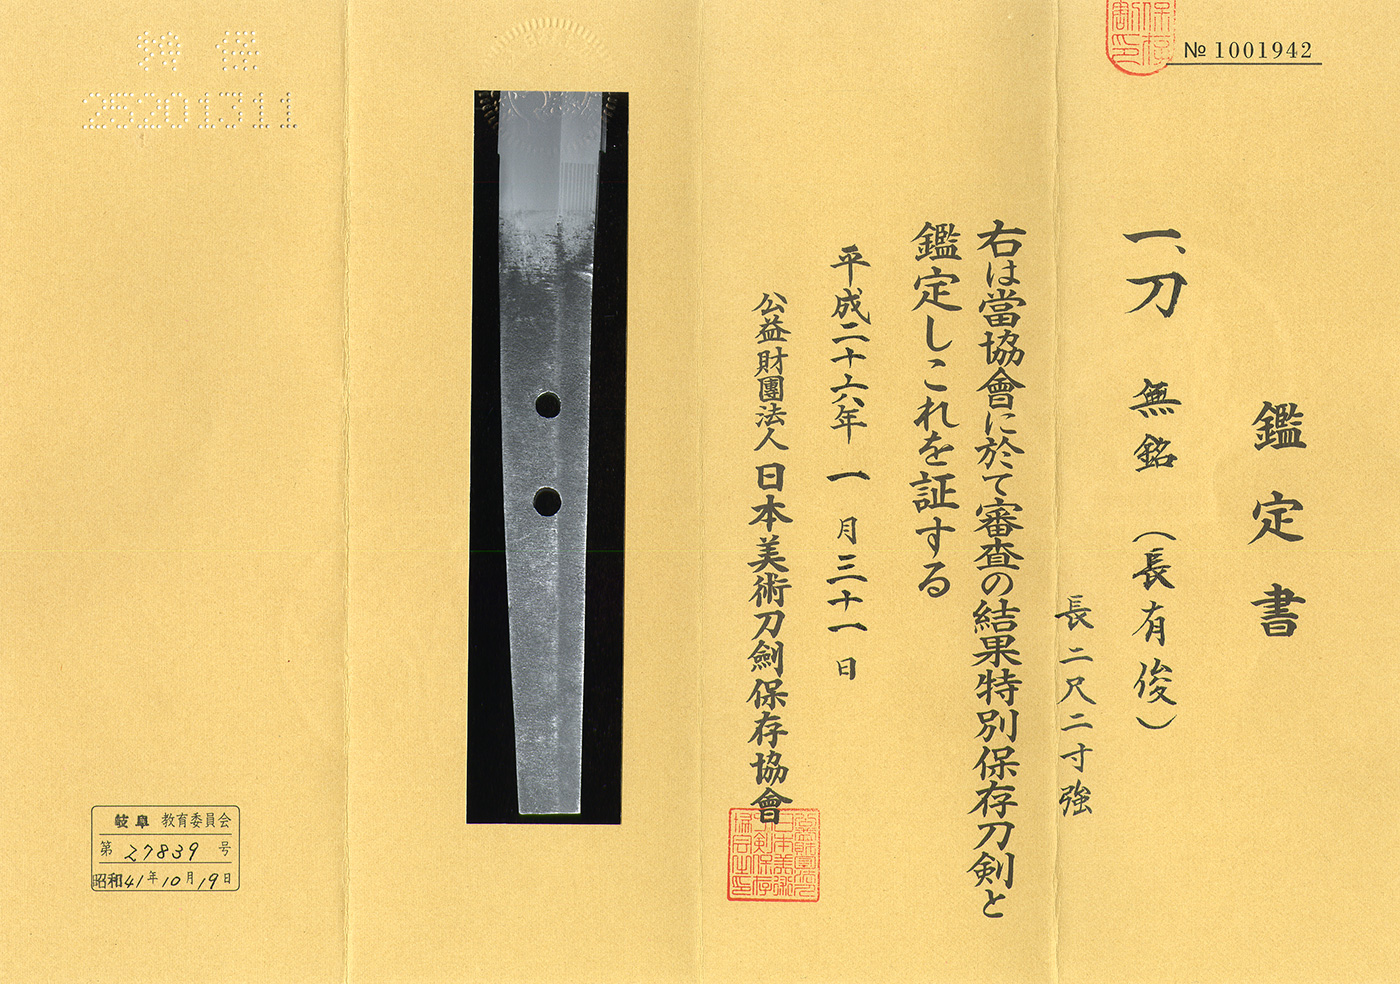 № 1001942
鑑定書
一、刀 無銘 (長有俊)
長二尺二寸強
右は當協會に於て審査の結果特別保存刀剣と
鑑定しこれを証する
平成二十六年一月三十一日
公益財團法人 日本美術刀劍保存協會
特保
25201311
岐阜教育委員会
第27839号
昭和41年10月19日